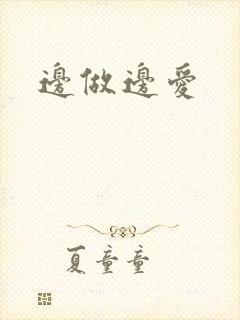 邊做邊愛
夏童童